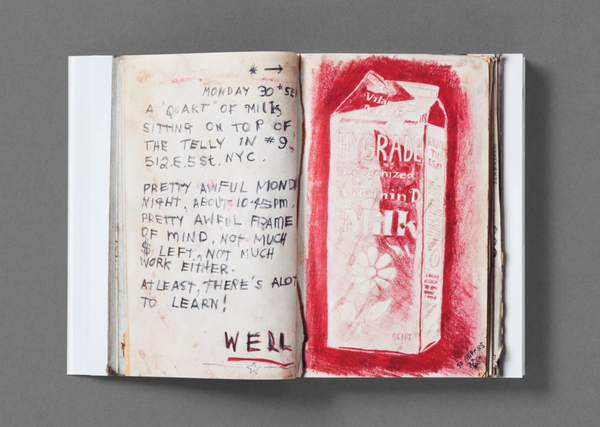 * →
MONDAY 30
A "QUART" OF Milk
SITTING ON TOP OF
THE TELLY IN #9,
512.E.5 St. NYC.
PRETTY AWFUL MOND
NIGHT, ABOUT 10:45PM.
PRETTY AWFUL FRAME
OF MIND, NOT MUCH
$ LEFT, NOT MUCH
WORK EITHER.
AT LEAST, THERE'S ALOT
TO LEARN!
WELL
HYGRADE
Vitamin D
Milk